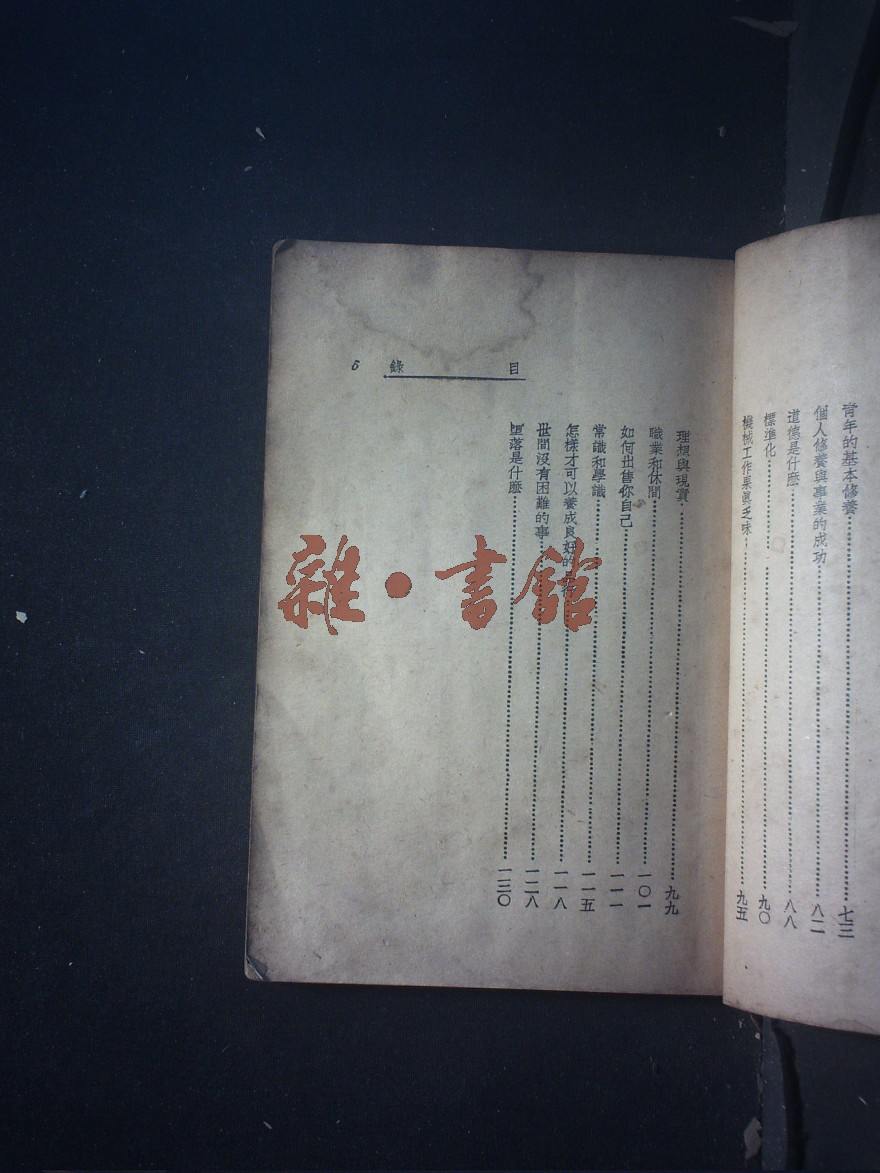 青年的基本修養⋯⋯七三
個人修養與事業的成功⋯⋯八二
道德是什麽⋯⋯八八
標準化⋯⋯九〇
機械工作果眞乏味⋯⋯九五
目錄 6
理想與現實⋯⋯九九
職業和休閒⋯⋯一〇一
如何出售你自己⋯⋯一一一
常識和學識⋯⋯一一五
怎樣才可以養成良好的⋯⋯一一八
世間沒有困難的事⋯⋯一二八
墮落是什麽⋯⋯一三〇
雜·書館